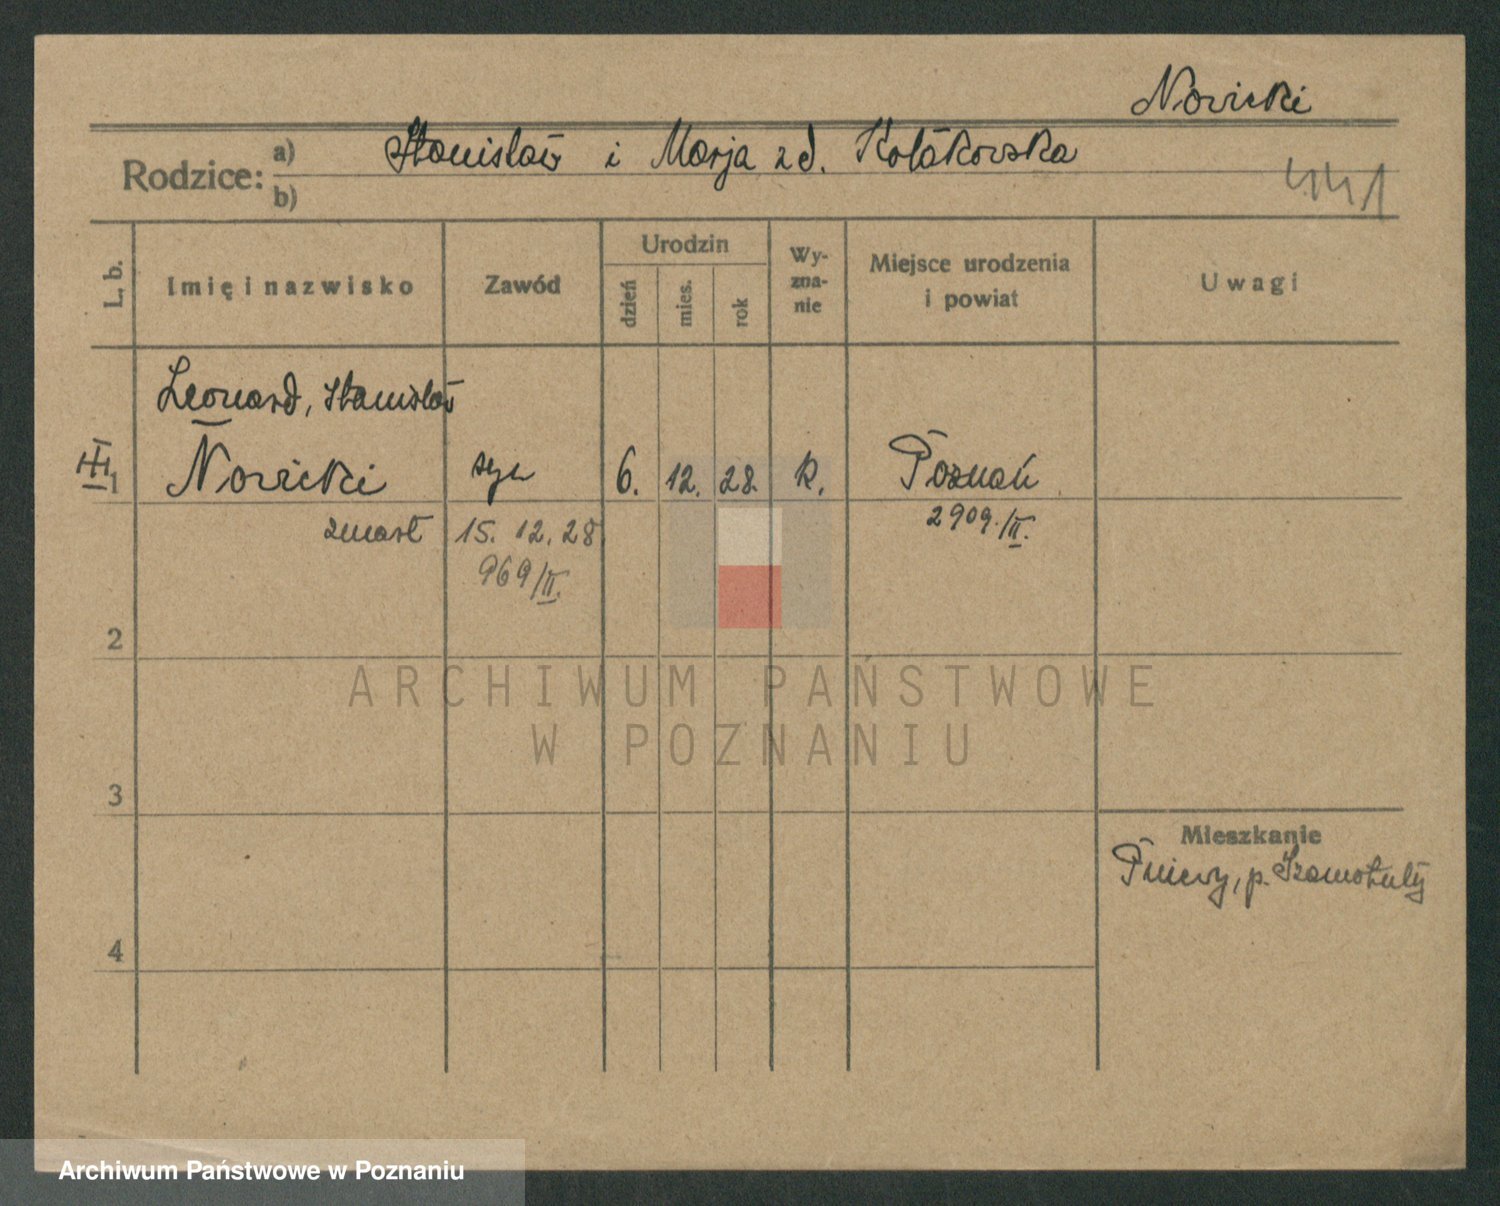 Nowicki
Rodzice: a) Stanisław i Marja zd. Kołakowska
b)
441
L. b.
Imię i nazwisko
Zawód
Urodzin
dzień
mies.
rok
Wy-
zna-
nie
Miejsce urodzenia
i powiat
Uwagi
Leonard, Stanisław
III 1 Nowicki syn 6. 12. 28. k. Poznań
zmarł 15. 12. 28 2909./II.
969/II.
2
ARCHIWUM PAŃSTWOWE
W POZNANIU
3
Mieszkanie
Pniewy, p. Szamotuły
4
Archiwum Państwowe w Poznaniu